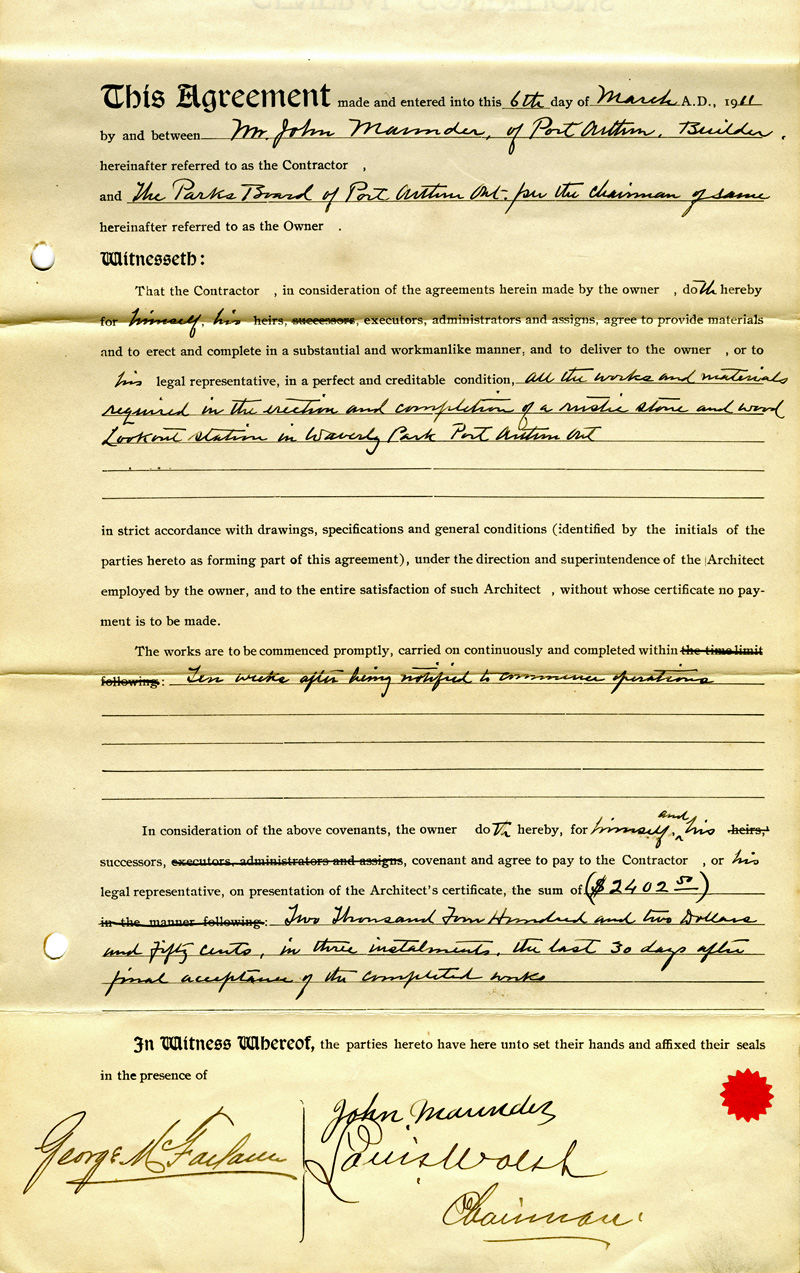 This Agreement made and entered into this 6th day of March A.D., 1911
by and between Mr. John Maunder, of Port Arthur, Builder,
hereinafter referred to as the Contractor ,
and The Parks Board of Port Arthur Ont. per the Chairman of same
hereinafter referred to as the Owner .
Witnesseth:
That the Contractor , in consideration of the agreements herein made by the owner , doth hereby
for himself, his heirs, successors, executors, administrators and assigns, agree to provide materials
and to erect and complete in a substantial and workmanlike manner, and to deliver to the owner , or to
his legal representative, in a perfect and creditable condition, all the works and materials
required in the erection and completion of a rustic stone and wood
Lookout station in Waverly Park Port Arthur Ont
in strict accordance with drawings, specifications and general conditions (identified by the initials of the
parties hereto as forming part of this agreement), under the direction and superintendence of the Architect
employed by the owner, and to the entire satisfaction of such Architect , without whose certificate no pay-
ment is to be made.
The works are to be commenced promptly, carried on continuously and completed within the time limit
following: Ten weeks after being notified to commence operations
In consideration of the above covenants, the owner doth hereby, for himself, and his heirs,
successors, executors, administrators and assigns, covenant and agree to pay to the Contractor , or his
legal representative, on presentation of the Architect's certificate, the sum of ($2402 50)
in the manner following: Two Thousand Four Hundred and two Dollars
and fifty cents, in three instalments, the last 30 days after
final acceptance of the completed works
In Witness Whereof, the parties hereto have here unto set their hands and affixed their seals
in the presence of
John Maunder
George McFarlane
Louis Walsh
Chairman